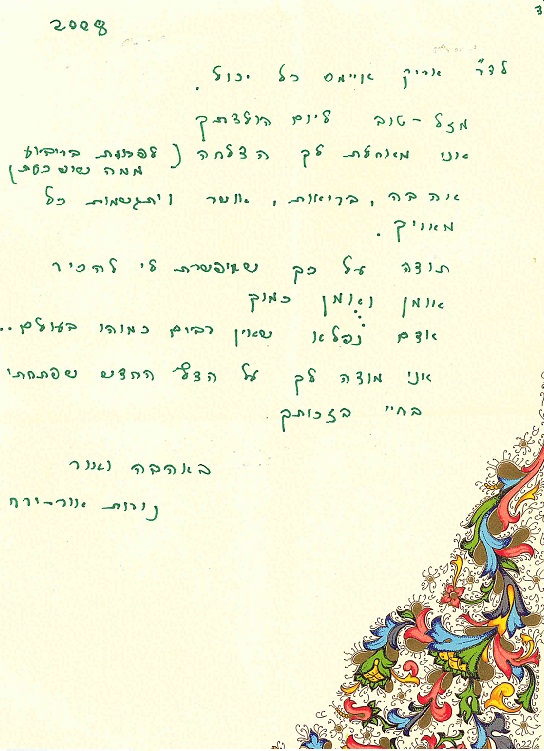 2008
לדר' אריק איימס כל יכול.
מזל-טוב ליום הולדתך
אני מאחלת לך הצלחה (לפחות בריבוע
ממה שיש כעת)
אהבה, בריאות, אושר ויתגשמות כל
מאוויך.
תודה על כך שאיפשרת לי להכיר
אומן ואומן כמוך
אדם נפלא שאין רבים כמוהו בעולם..
אני מודה לך על הדף החדש שפתחתי
בחיי בזכותך
באהבה ואור
נורות אור-ירח